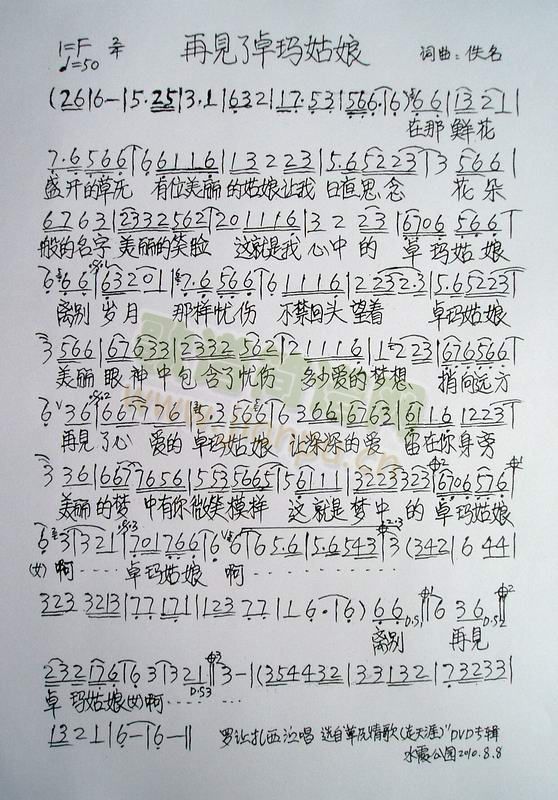 再見了卓玛姑娘
1=F 2/4
♩=50
词曲：佚名
(2 6 | 6 - | 5·2 5 | 3·1 | 6 3 2 | 1 7·5 3 | 5 6 6·| 6) 6 6 | 1 3 2 1 |
在那 鲜花
7·6 5 6 6 | 6 6 1 1 6 | 1 3 2 2 3 | 5·6 5 2 2 3 | 3 5 6 6 |
盛开的草元 有位美丽的姑娘让我 日直思念 花朵
6 7 6 3 | 2 3 3 2 5 6 2 | 2 0 1 1 1 6 | 3 2 2 3 | 6 7 0 6 5 6 6 |
般的名字 美丽的笑脸 这就是我 心中的 卓玛姑娘
6 6 6 | 6 3 2 0 1 | 7·6 5 6 6 | 6 1 1 1 6 | 2 2 3 2·3 | 5·6 5 2 2 3 |
离别 岁月 那样忧伤 不禁回头 望着 卓玛姑娘
3 5 6 6 | 6 7 6 3 3 | 2 3 3 2 5 6 2 | 2 1 1 1 1 6 | 1 2 2 3 | 6 7 6 5 6 6 |
美丽 眼神中包含了忧伤 多少爱的梦想 捎向远方
6 3 6 | 6 6 7 1 7 6 | 5·3 5 6 6 | 6 3 6 6 | 6 7 6 3 | 6 1 1 6 1 2 2 3 |
再見了心爱的 卓玛姑娘 让深深的爱 留在你身旁
3 3 6 | 6 6 7 7 6 5 6 | 5 5 3 5 6 6 5 | 5 6 1 1 1 | 3 2 2 3 3 2 3 | 6 7 0 6 5 7 6 |
美丽的梦 中有你微笑模样 这就是梦中 的 卓玛姑娘
6 3 | 3 2 1 | 7 0 1 7 6 6 | 6 6 | 6 5·6 | 5·6 5 4 3 | 3 (3 4 2 | 6 4 4 |
(女) 啊 ····· 卓玛姑娘 啊 ·············
3 2 3 3 2 1 3 | 7 7 1 7 1 | 1 2 3 7 7 | 1 6·| 6) 6 6 | 6 3 6
D.S1 D.S2
离别 再見
2 3 2 1 7 6 | 6 3 | 3 2 1 | 3 - | (3 5 4 4 3 2 | 3 3 1 3 2 | 7 3 2 3 3 |
D.S3
卓玛姑娘(女)啊 ·········
1 3 2 1 | 6 - | 6 - ||
罗让扎西泣唱 选自"草元情歌(走天涯)"DVD专辑
水霞公园2010.8.8